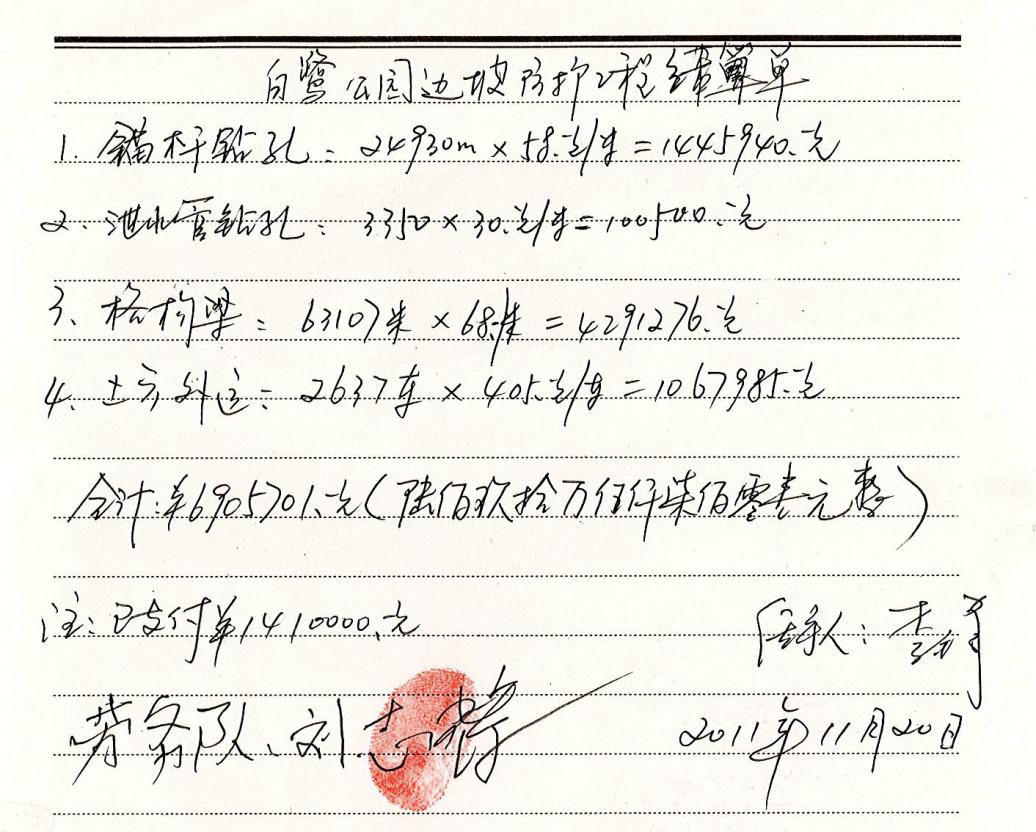 白鹭公园边坡防护工程结算单
1. 锚杆钻孔: 24930m × 58.元/米 = 1445940.元
2. 泄水管钻孔: 3350 × 30.元/米 = 100500.元
3. 格构梁: 63107米 × 68.米 = 4291276.元
4. 土方外运: 2637车 × 405.元/车 = 1067985.元
合计: ¥6905701.元(陆佰玖拾万伍仟柒佰零壹元整)
注: 已支付¥1410000.元
人: 李
劳务队、刘志
2011年11月20日